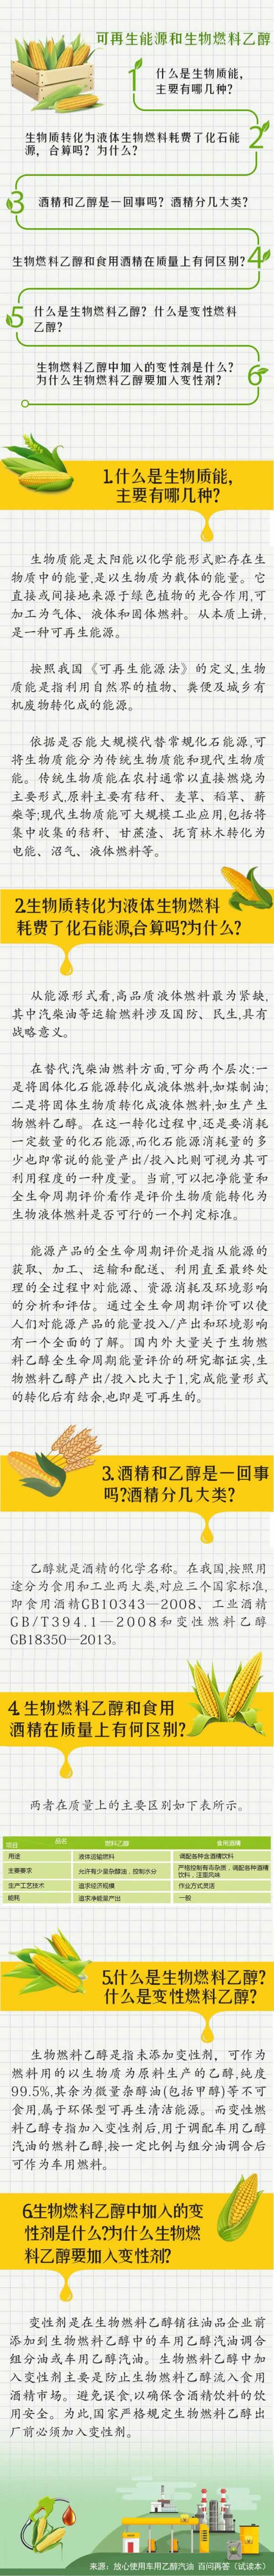 可再生能源和生物燃料乙醇
1
什么是生物质能，
主要有哪几种？
生物质转化为液体生物燃料耗费了化石能
源，合算吗？为什么？
2
3
酒精和乙醇是一回事吗？酒精分几大类？
生物燃料乙醇和食用酒精在质量上有何区别？
4
5
什么是生物燃料乙醇？什么是变性燃料
乙醇？
生物燃料乙醇中加入的变性剂是什么？
为什么生物燃料乙醇要加入变性剂？
6
1.什么是生物质能，
主要有哪几种？
生物质能是太阳能以化学能形式贮存在生
物质中的能量,是以生物质为载体的能量。它
直接或间接地来源于绿色植物的光合作用,可
加工为气体、液体和固体燃料。从本质上讲,
是一种可再生能源。
按照我国《可再生能源法》的定义,生物
质能是指利用自然界的植物、粪便及城乡有
机废物转化成的能源。
依据是否能大规模代替常规化石能源,可
将生物质能分为传统生物质能和现代生物质
能。传统生物质能在农村通常以直接燃烧为
主要形式,原料主要有秸秆、麦草、稻草、薪
柴等;现代生物质能可大规模工业应用,包括将
集中收集的秸秆、甘蔗渣、抚育林木转化为
电能、沼气、液体燃料等。
2.生物质转化为液体生物燃料
耗费了化石能源,合算吗?为什么?
从能源形式看,高品质液体燃料最为紧缺,
其中汽柴油等运输燃料涉及国防、民生,具有
战略意义。
在替代汽柴油燃料方面,可分两个层次:一
是将固体化石能源转化成液体燃料,如煤制油;
二是将固体生物质转化成液体燃料,如生产生
物燃料乙醇。在这一转化过程中,还是要消耗
一定数量的化石能源,而化石能源消耗量的多
少也即常说的能量产出/投入比则可视为其可
利用程度的一种度量。当前,可以把净能量和
全生命周期评价看作是评价生物质能转化为
生物液体燃料是否可行的一个判定标准。
能源产品的全生命周期评价是指从能源的
获取、加工、运输和配送、利用直至最终处
理的全过程中对能源、资源消耗及环境影响
的分析和评估。通过全生命周期评价可以使
人们对能源产品的能量投入/产出和环境影响
有一个全面的了解。国内外大量关于生物燃
料乙醇全生命周期能量评价的研究都证实,生
物燃料乙醇产出/投入比大于1,完成能量形式
的转化后有结余,也即是可再生的。
3.酒精和乙醇是一回事
吗?酒精分几大类?
乙醇就是酒精的化学名称。在我国,按照用
途分为食用和工业两大类,对应三个国家标准,
即食用酒精GB10343—2008、工业酒精
GB/T394.1—2008和变性燃料乙醇
GB18350—2013。
4.生物燃料乙醇和食用
酒精在质量上有何区别?
两者在质量上的主要区别如下表所示。
项目 品名 燃料乙醇 食用酒精
用途 液体运输燃料 调配各种含酒精饮料
主要要求 允许有少量杂醇油，控制水分 严格控制有毒杂质，调配各种酒精饮料，注重风味
生产工艺技术 追求经济规模 作业方式灵活
能耗 追求净能量产出 一般
5.什么是生物燃料乙醇?
什么是变性燃料乙醇?
生物燃料乙醇是指未添加变性剂，可作为
燃料用的以生物质为原料生产的乙醇,纯度
99.5%,其余为微量杂醇油(包括甲醇)等不可
食用,属于环保型可再生清洁能源。而变性燃
料乙醇专指加入变性剂后,用于调配车用乙醇
汽油的燃料乙醇,按一定比例与组分油调合后
可作为车用燃料。
6.生物燃料乙醇中加入的变
性剂是什么?为什么生物燃
料乙醇要加入变性剂?
变性剂是在生物燃料乙醇销往油品企业前
添加到生物燃料乙醇中的车用乙醇汽油调合
组分油或车用乙醇汽油。生物燃料乙醇中加
入变性剂主要是防止生物燃料乙醇流入食用
酒精市场。避免误食,以确保含酒精饮料的饮
用安全。为此,国家严格规定生物燃料乙醇出
厂前必须加入变性剂。
来源：放心使用车用乙醇汽油 百问再答（试读本）